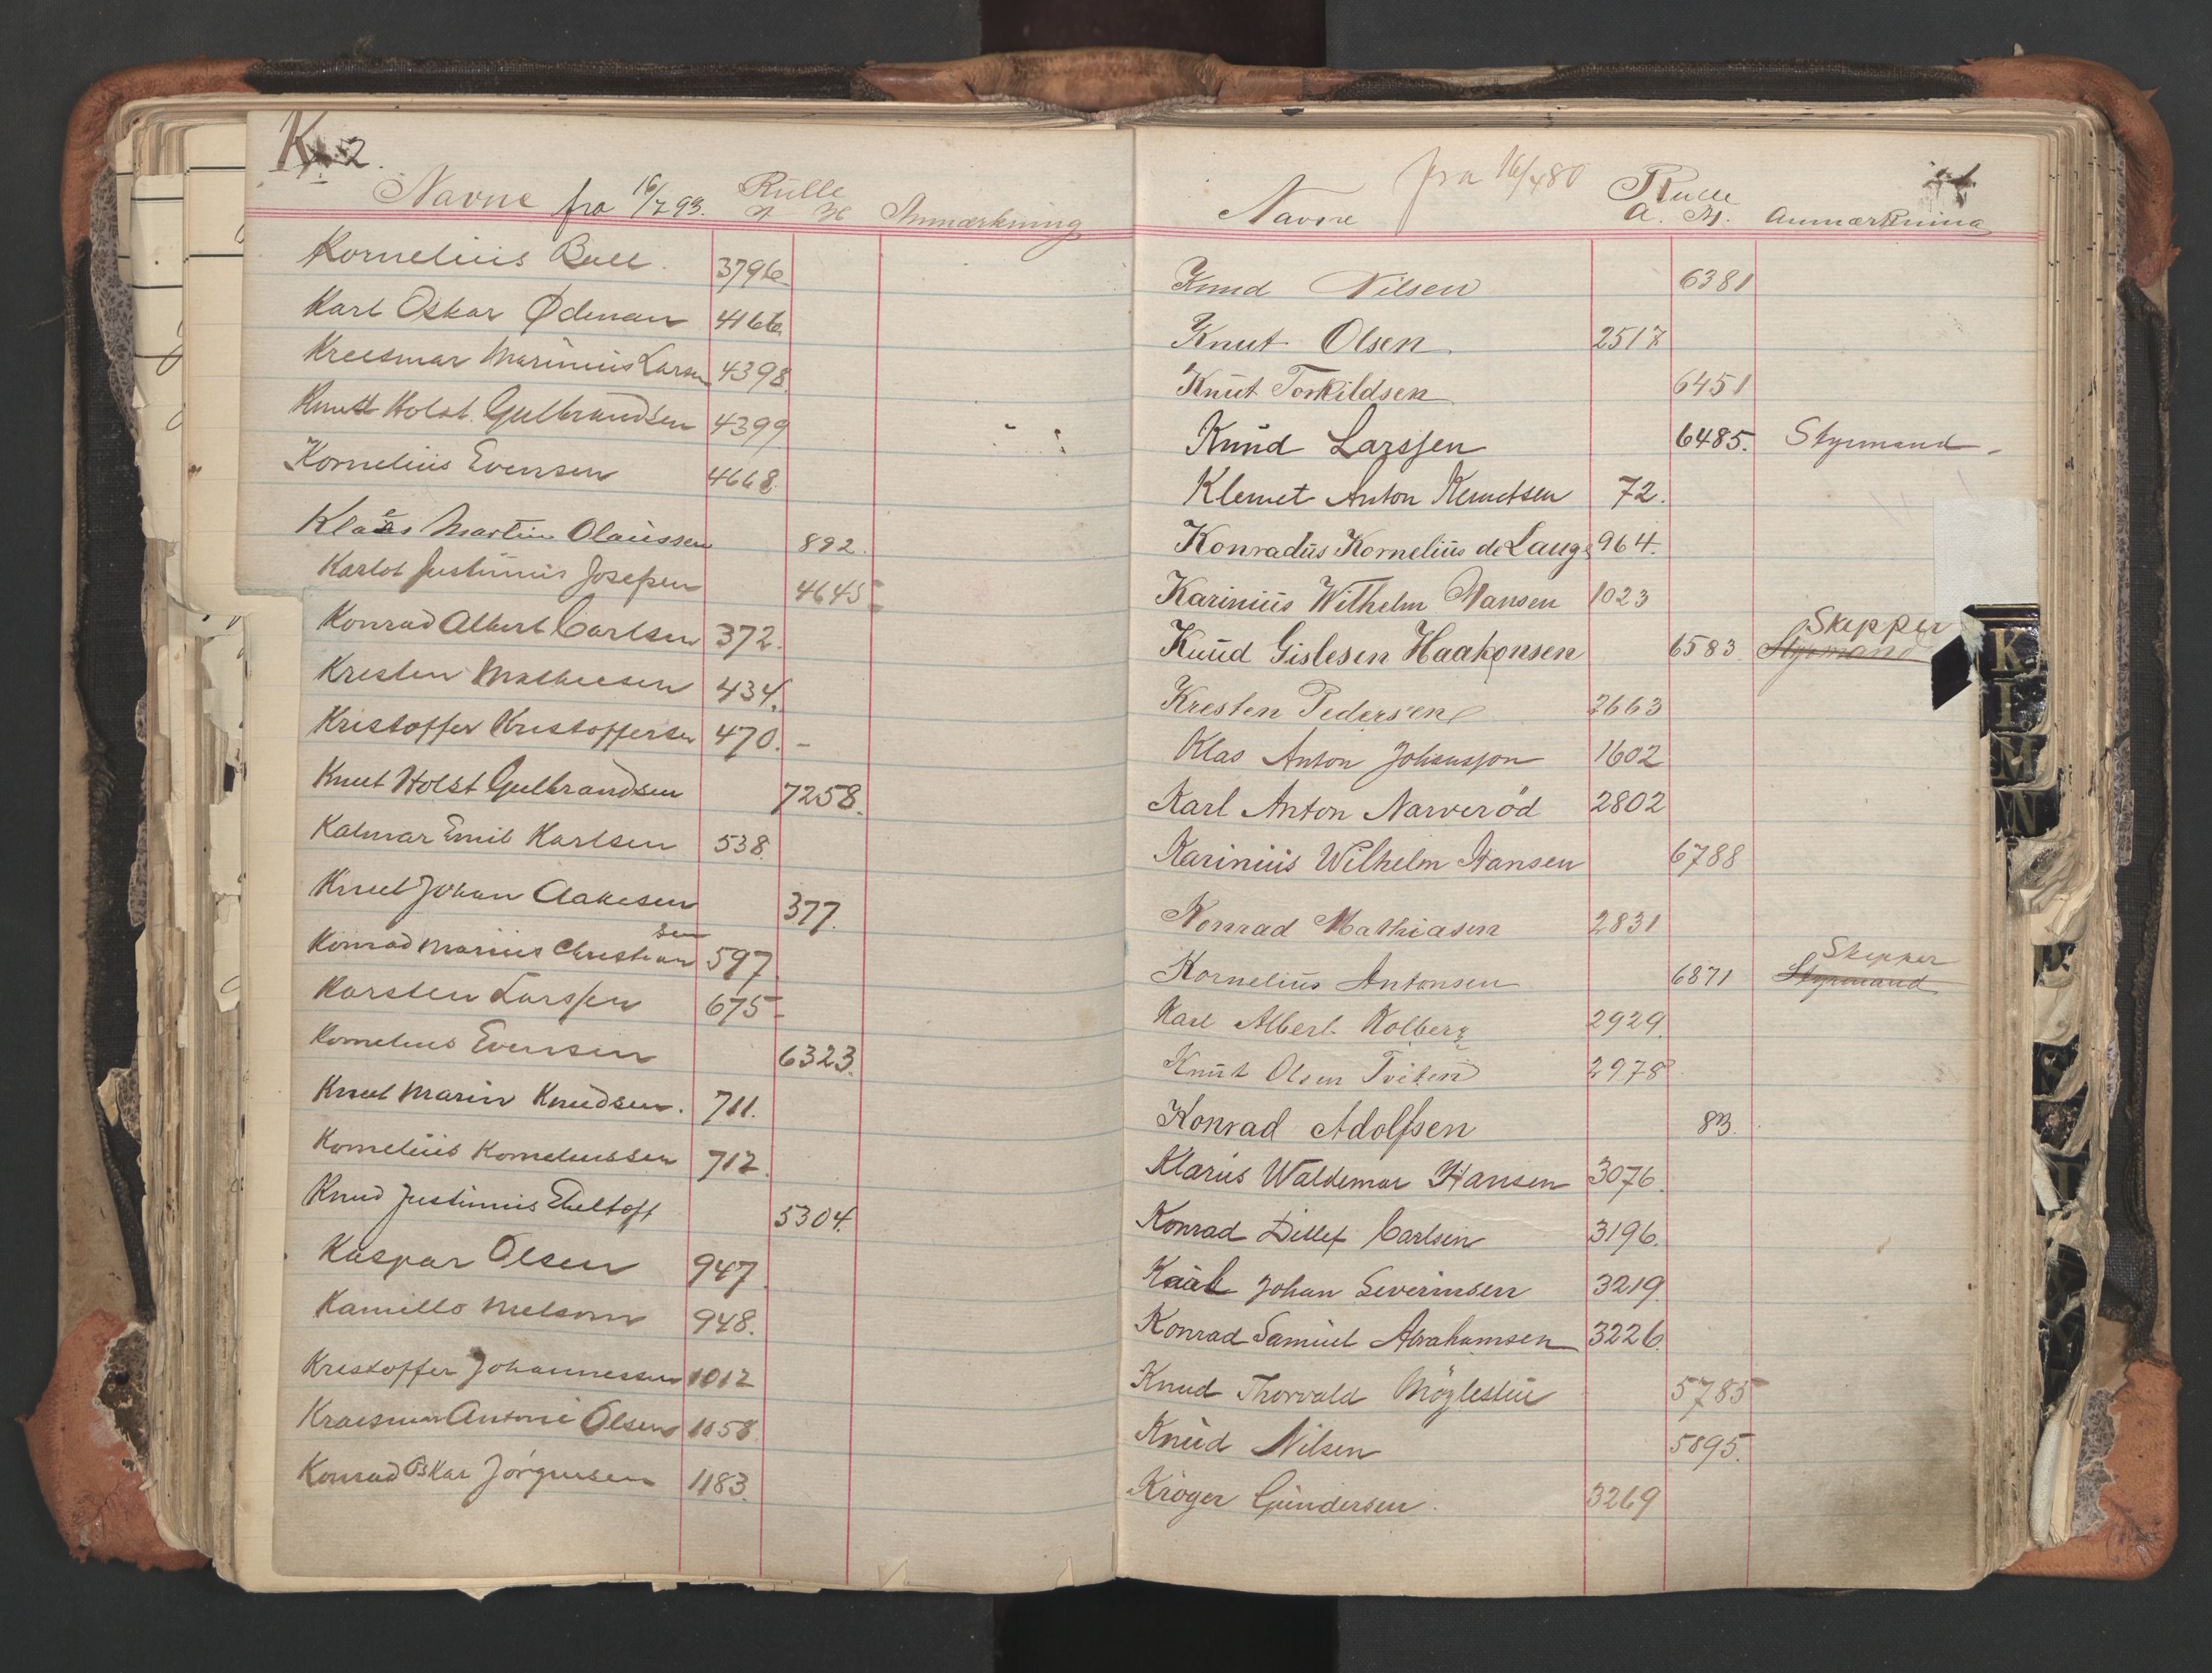 K 2.
Navne fra 16/7 93. Rulle Anmærkning
Kornelius Bull 3796
Karl Oskar Ödman 4166
Marinius Larsen 4398.
Knutt Holst Gulbrandsen 4399
Kornelius Evensen 4668
Martin Olaussen 892.
Justinius Josefsen 4645
Konrad Albert Carlsen 372.
Kresten Mathiesen 434.
Kristoffer Kristoffersen 470. -
Knut Holst Gulbrandsen 7258.
Kalmar Emil Karlsen 538.
Knut Johan Aakesen 377.
Konrad Marius Christiansen 597
Karsten Larssen 675-
Kornelius Evensen 6323.
Knut Marin Knudsen. 711.
Kornelius Korneliussen 712.
Knud Justinius Ebeltoft 5304.
Kaspar Olsen 947.
Kamillo Melsom 948.
Kristoffer Johannessen 1012
Antoni Olsen 1158.
Konrad Oskar Jörgensen 1183.
fra 16/4 80
Navne Rulle Anmærkning
A. M.
Knud Nilsen 6381
Knut Olsen 2517
Knut Torkildsen 6451
Knud Larssen 6485. Styrmand
Klemet Anton Klemetsen 72.
Konradus Kornelius de Lange 964.
Karinius Wilhelm Hansen 1023
Skipper
Knud Gislesen Haakonsen 6583 Styrmand
Kresten Pedersen 2663
Klas Anton Johansson 1602
Karl Anton Narveröd 2802
Karinius Wilhelm Hansen 6788
Konrad Mathiasen 2831
Skipper
Kornelius Antonsen 6871 Styrmand
Karl Albert Kolberg 2929.
Knut Olsen Tveten 2978
Konrad Adolfsen 83.
Klarus Waldemar Hansen 3076.
Konrad Ditlef Carlsen 3196.
Johan Severinsen 3219.
Konrad Samuel Abrahamsen 3226.
Knud Thorvald Möglestue 5785
Knud Nilsen 5895.
Kröger Gundersen. 3269
K
I
M
N